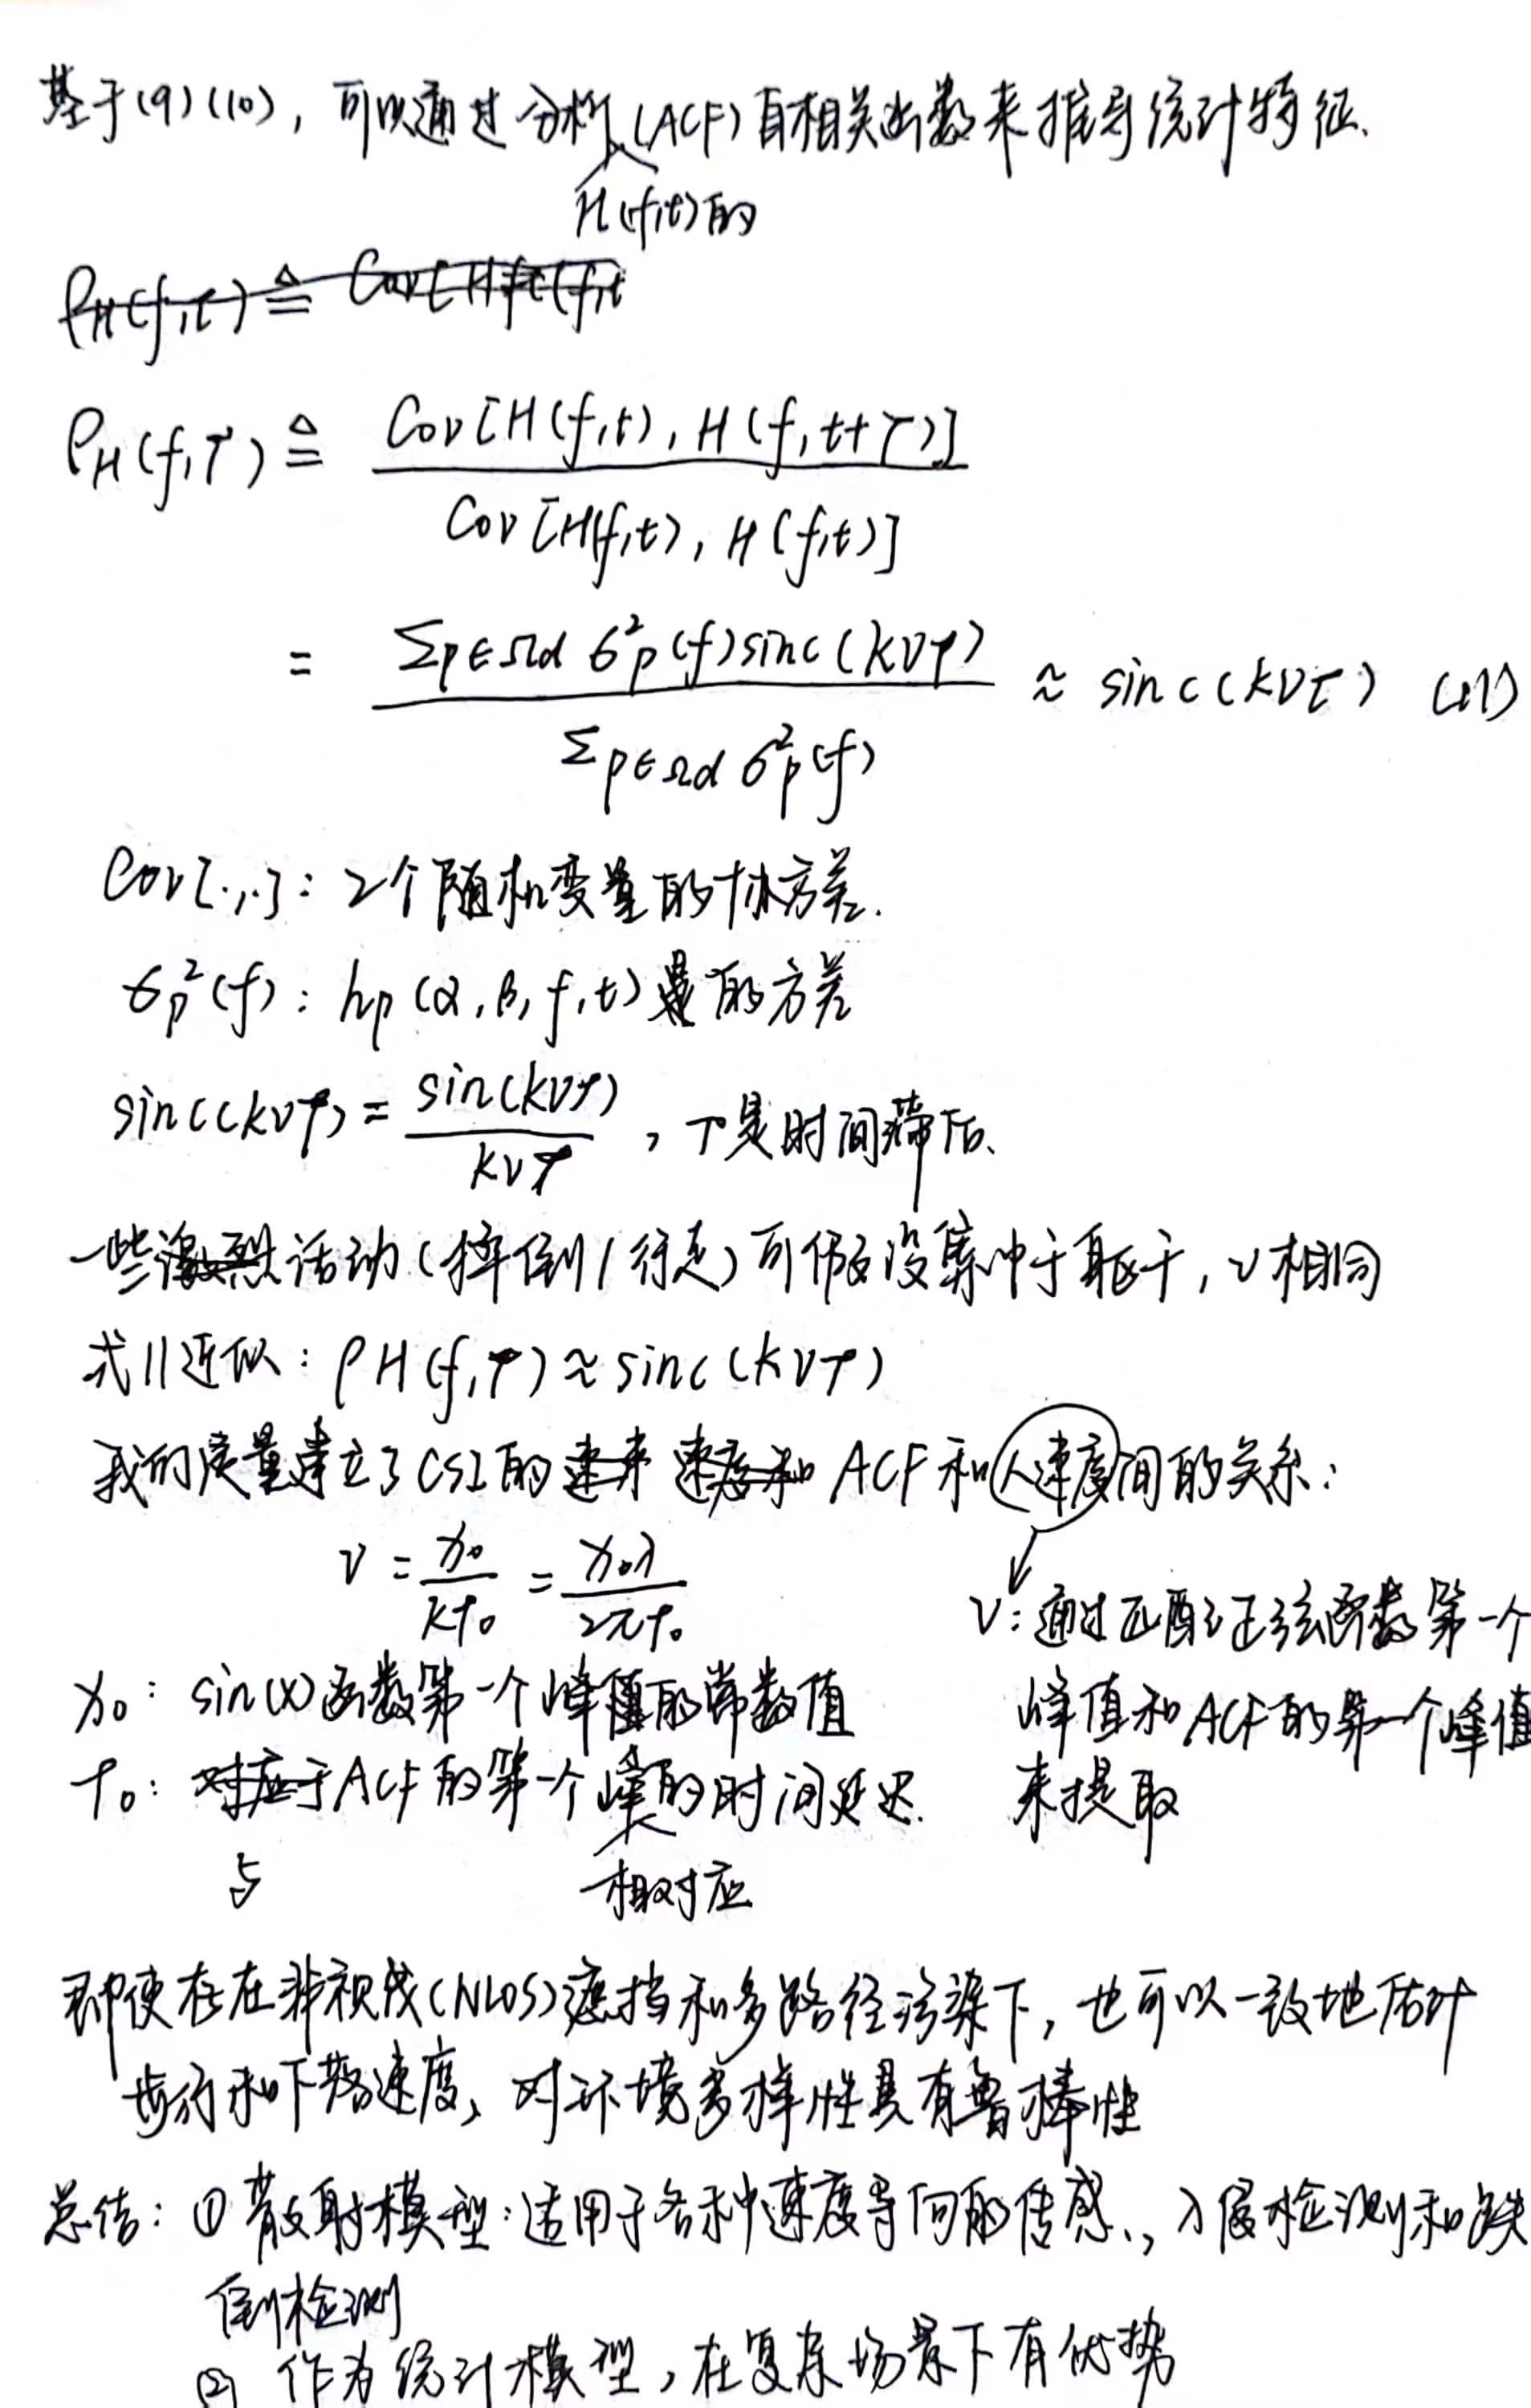 基于(9)(10),可以通过分析H(f,t)的(ACF)自相关函数来推导统计特征.
ρH(f,τ) ≜ Cov[H(f,t
ρH(f,τ) ≜ Cov[H(f,t), H(f,t+τ)] / Cov[H(f,t), H(f,t)]
= Σp∈Ωd σ²p(f)sinc(kvτ) / Σp∈Ωd σ²p(f) ≈ sinc(kvτ) (11)
Cov[·,·]: 2个随机变量的协方差.
σp²(f): hp(α,β,f,t)的方差
sinc(kvτ) = sin(kvτ) / kvτ , τ是时间滞后.
一些激烈活动(摔倒/行走)可假设集中于躯干,v相同
式11近似: ρH(f,τ) ≈ sinc(kvτ)
我的建立了CSI的速 速度和 ACF和人速度间的关系:
v = x₀ / kτ₀ = x₀λ / 2πτ₀
v: 通过匹配正弦函数第一个
峰值和ACF的第一个峰值
来提取
x₀: sin(x)函数第一个峰值的常数值
τ₀: 对应于ACF的第一个峰的时间延迟.
与
相对应
即使存在非视线(NLOS)遮挡和多路径污染下,也可以一致地估计
步行和下落速度,对环境多样性具有鲁棒性
总结: ① 散射模型:适用于各种速度导向的传感,入侵检测和跌
倒检测
② 作为统计模型,在复杂场景下有优势